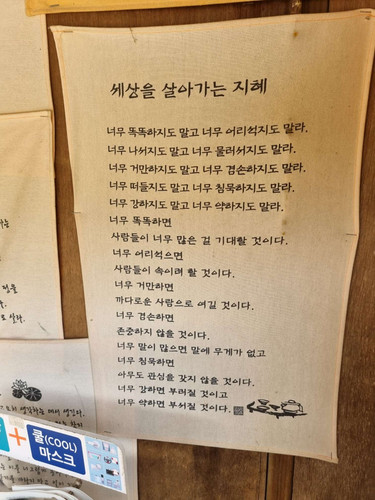 세상을 살아가는 지혜
너무 똑똑하지도 말고 너무 어리석지도 말라.
너무 나서지도 말고 너무 물러서지도 말라.
너무 거만하지도 말고 너무 겸손하지도 말라.
너무 떠들지도 말고 너무 침묵하지도 말라.
너무 강하지도 말고 너무 약하지도 말라.
너무 똑똑하면
사람들이 너무 많은 걸 기대할 것이다.
너무 어리석으면
사람들이 속이려 할 것이다.
너무 거만하면
까다로운 사람으로 여길 것이다.
너무 겸손하면
존중하지 않을 것이다.
너무 말이 많으면 말에 무게가 없고
너무 침묵하면
아무도 관심을 갖지 않을 것이다.
너무 강하면 부러질 것이고
너무 약하면 부서질 것이다.
쿨(COOL)
마스크